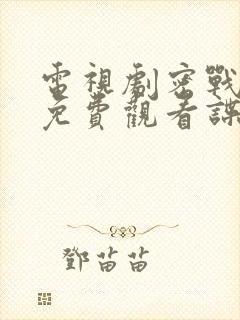 電視劇密戰
免費觀看諜
鄧苗苗